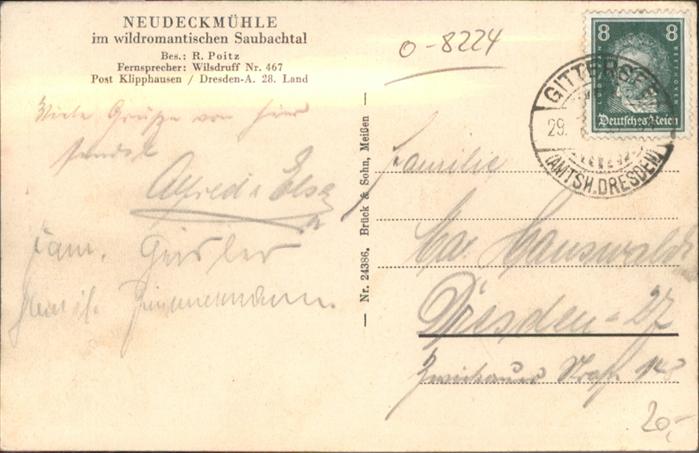 NEUDECKMÜHLE
im wildromantischen Saubachtal
Bes.: R. Poitz
Fernsprecher: Wilsdruff Nr. 467
Post Klipphausen / Dresden-A. 28. Land
0-8224
8 8
LUDWIG VAN BEETHOVEN
Deutsches Reich
GITTERSEE
29.
(AMTSH. DRESDEN)
Viele Grüße von hier
sendet
Alfred u Elsa
Fam.
Familie
Zimmermann.
Nr. 24386. Brück & Sohn, Meißen
Familie
Hauswald
Dresden-27
Zwickauer Straß
20,-